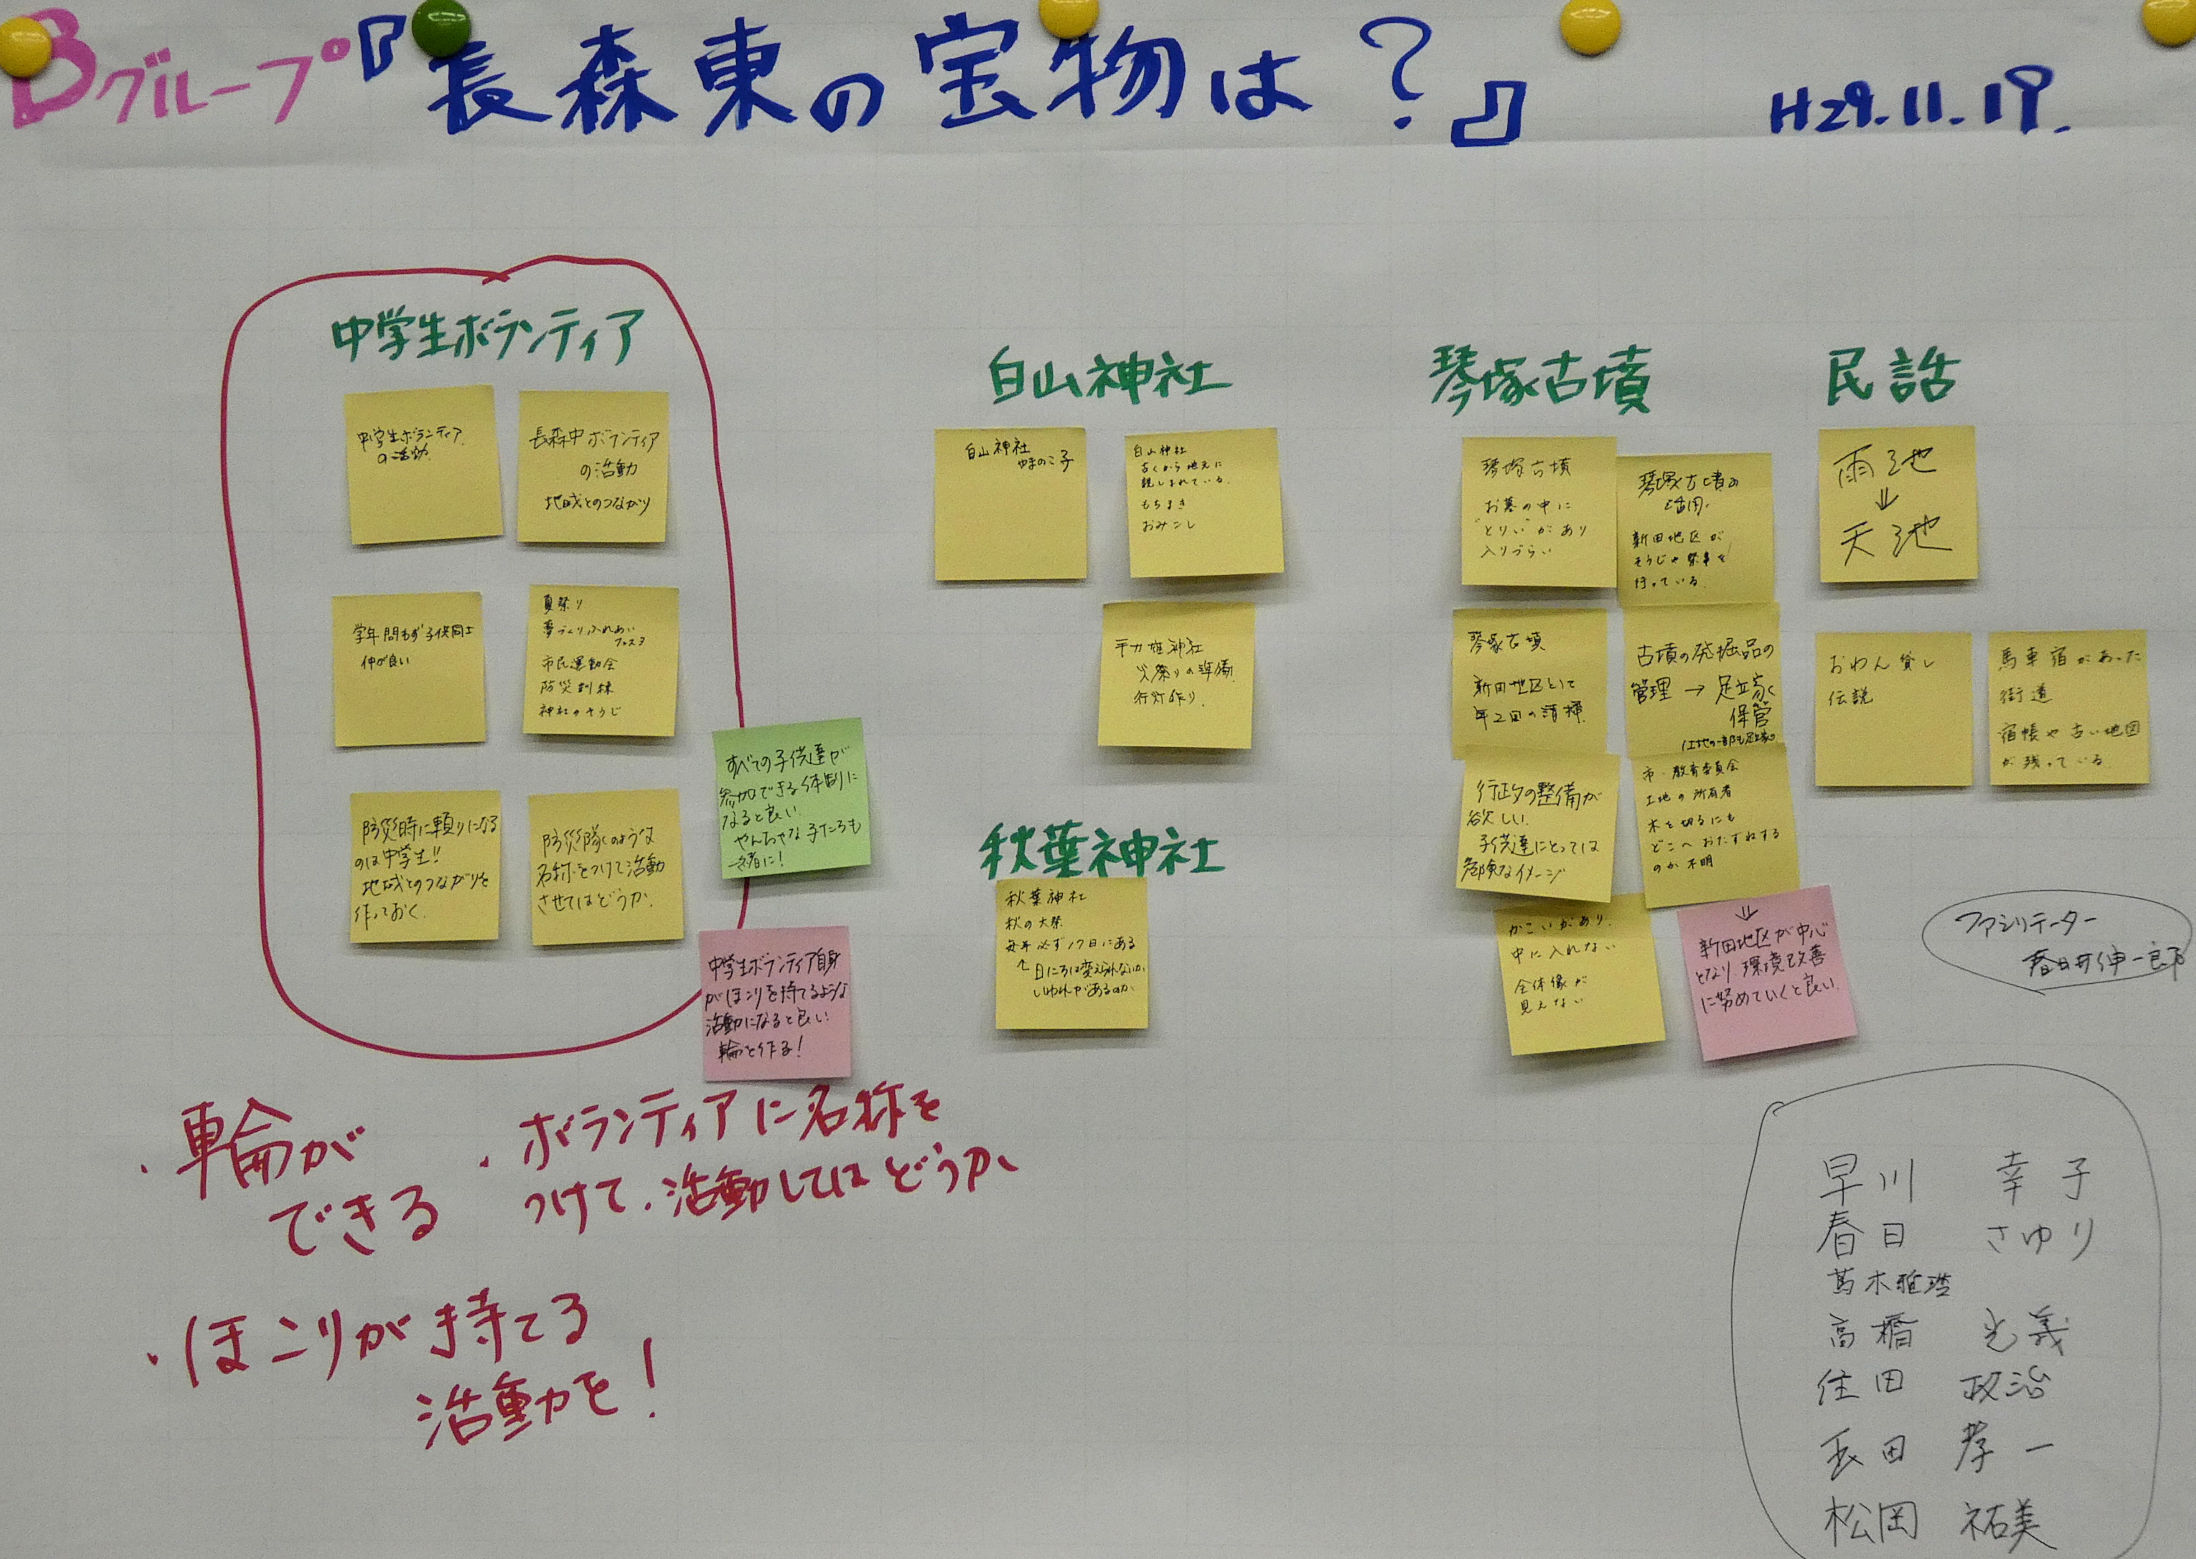 Bグループ『長森東の宝物は?』 H29.11.19.
中学生ボランティア
中学生ボランティア
の活動
長森中ボランティア
の活動
地域とのつながり
学年問わず子供同士
仲が良い
夏祭り
夢づくりふれあい
フェスタ
市民運動会
防災訓練
神社のそうじ
防災時に頼りになる
のは中学生!!
地域とのつながりを
作っておく.
防災隊のような
名称をつけて活動
させてはどうか.
すべての子供達が
参加できる体制に
なると良い.
やんちゃな子たちも
一緒に!
中学生ボランティア自身
がほこりを持てるような
活動になると良い
輪を作る!
・輪が
できる
・ボランティアに名称を
つけて、活動してはどうか
・ほこりが持てる
活動を!
白山神社
白山神社
やまのこ子
白山神社
古くから地元に
親しまれている.
もちまき
おみこし
手力雄神社
火祭りの準備
行灯作り
秋葉神社
秋葉神社
秋の大祭
毎年必ず17日にある
↑日にちは変えられないか
いわれがあるのか
琴塚古墳
琴塚古墳
お墓の中に
"とりい"があり
入りづらい
琴塚古墳の
活用.
新田地区が
そうじや祭事を
行っている.
琴塚古墳
新田地区として
年2回の清掃
古墳の発掘品の
管理→足立家で
保管
行政の整備が
欲しい.
子供達にとっては
危険なイメージ
市・教育委員会
土地の所有者
木を切るにも
どこへおたずねする
のか不明
かこいがあり.
中に入れない
全体像が
見えない
⇓
新田地区が中心
となり、環境改善
に努めていくと良い.
民話
雨池
⇓
天池
おわん貸し
伝説
馬車宿があった
街道
宿帳や古い地図
が残っている.
ファシリテーター
春日井伸一郎
早川 幸子
春日 さゆり
高橋 光義
住田 政治
長田 孝一
松岡 祐美